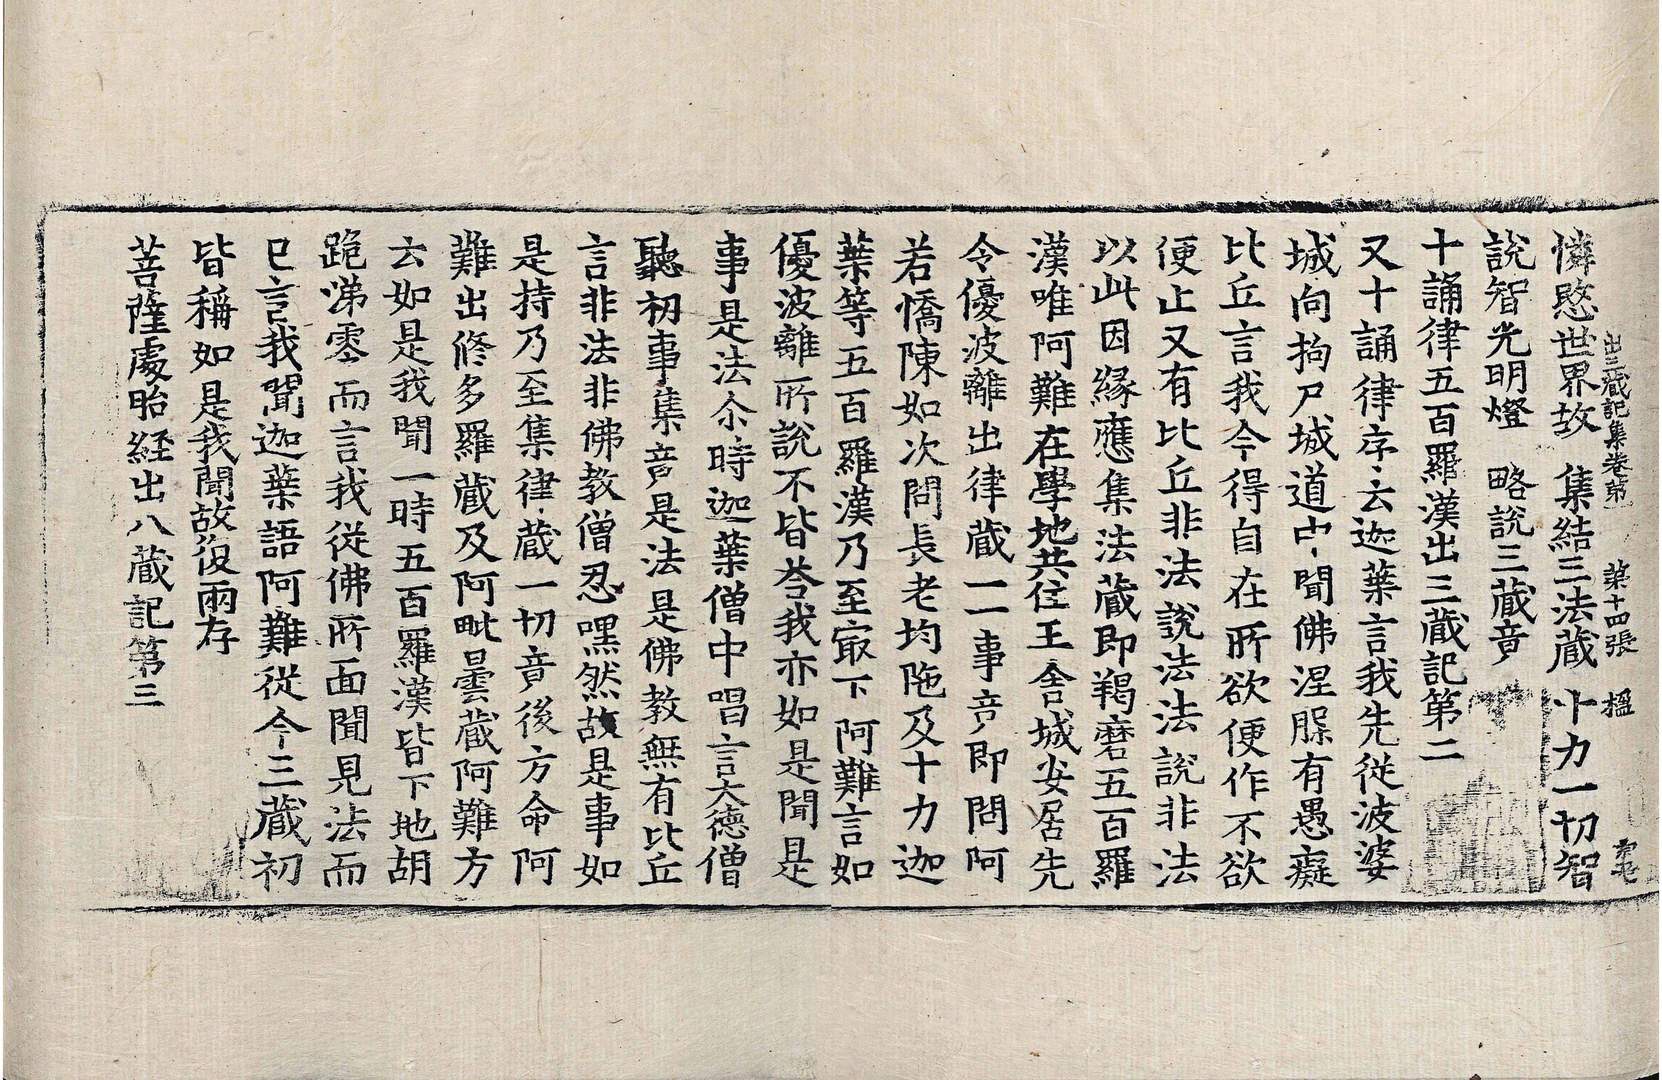 出三藏記集卷第一 第十四張 楹
憐愍世界故 集結三法藏 十力一切智
說智光明燈 略說三藏竟
十誦律五百羅漢出三藏記第二
又十誦律序云迦葉言我先從波婆
城向拘尸城道中聞佛涅槃有愚癡
比丘言我今得自在所欲便作不欲
便止又有比丘非法說法法說非法
以此因緣應集法藏即羯磨五百羅
漢唯阿難在學地共住王舍城安居先
令優波離出律藏一一事竟即問阿
若憍陳如次問長老均陁及十力迦
葉等五百羅漢乃至寂下阿難言如
優波離所說不皆荅我亦如是聞是
事是法尒時迦葉僧中唱言大德僧
聽初事集竟是法是佛教無有比丘
言非法非佛教僧忍嘿然故是事如
是持乃至集律藏一切竟後方命阿
難出修多羅藏及阿毗曇藏阿難方
云如是我聞一時五百羅漢皆下地胡
跪涕零而言我從佛所面聞見法而
已言我聞迦葉語阿難從今三藏初
皆稱如是我聞故復兩存
菩薩處胎經出八藏記第三